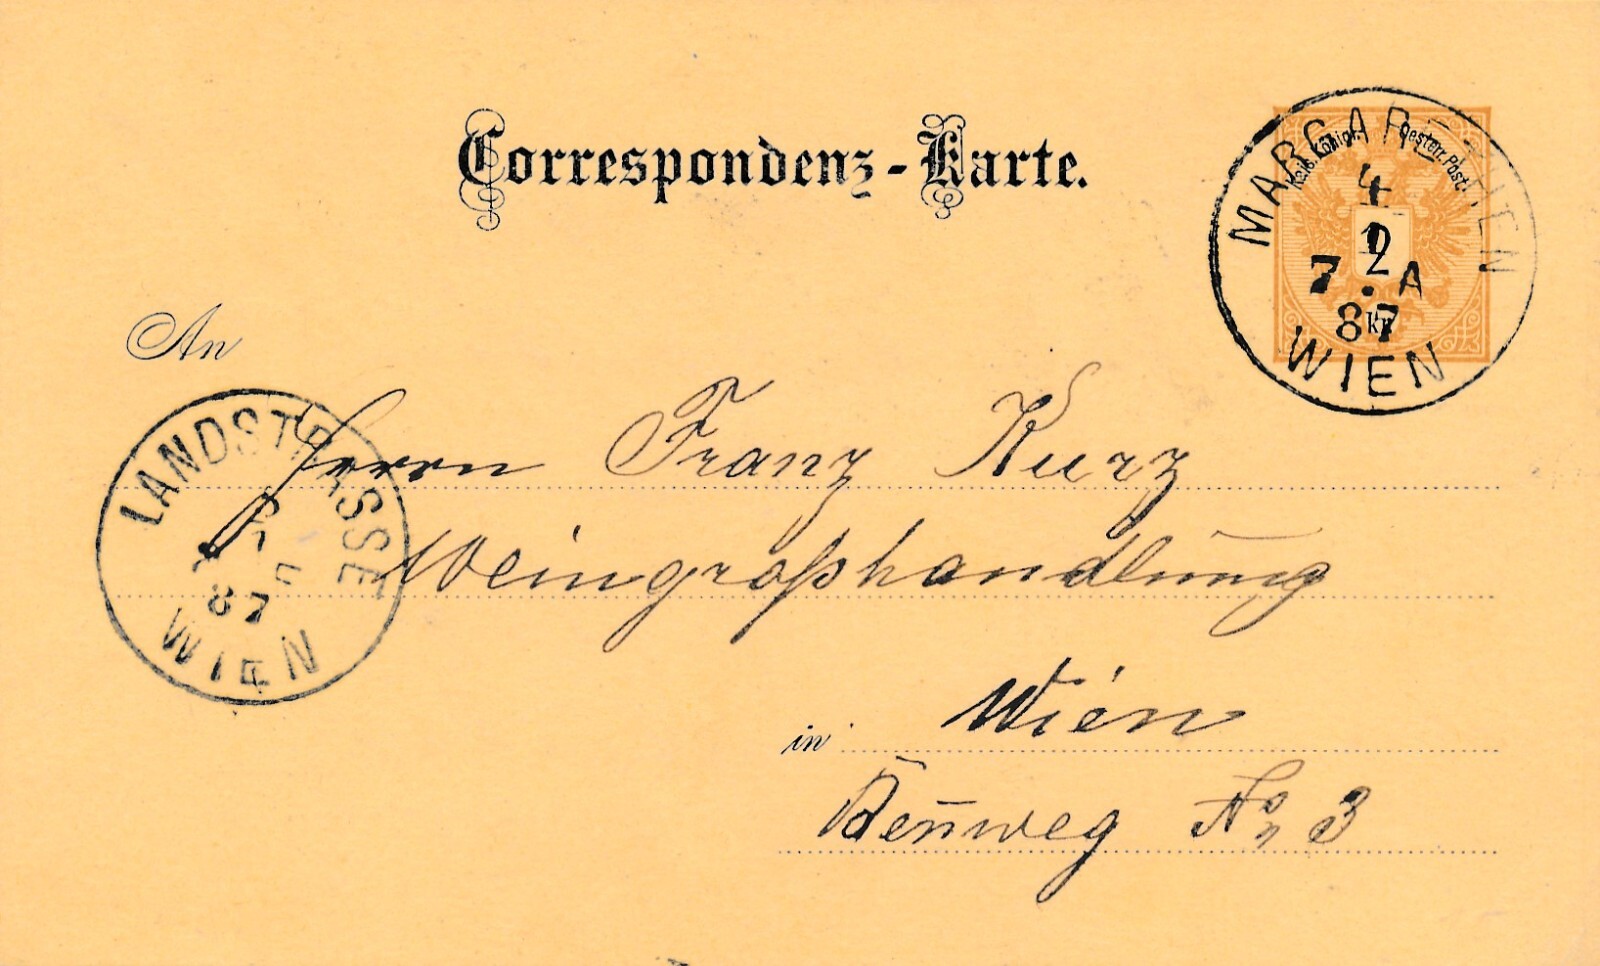 Correspondenz-Karte.
Kais. Königl. Oesterr. Post.
2
kr.
MARGARETHEN
4
7 . A
87
WIEN
An
LANDSTRASSE
87
WIEN
Herrn Franz Kurz
Weingroßhandlung
in Wien
Ren̄weg No 3